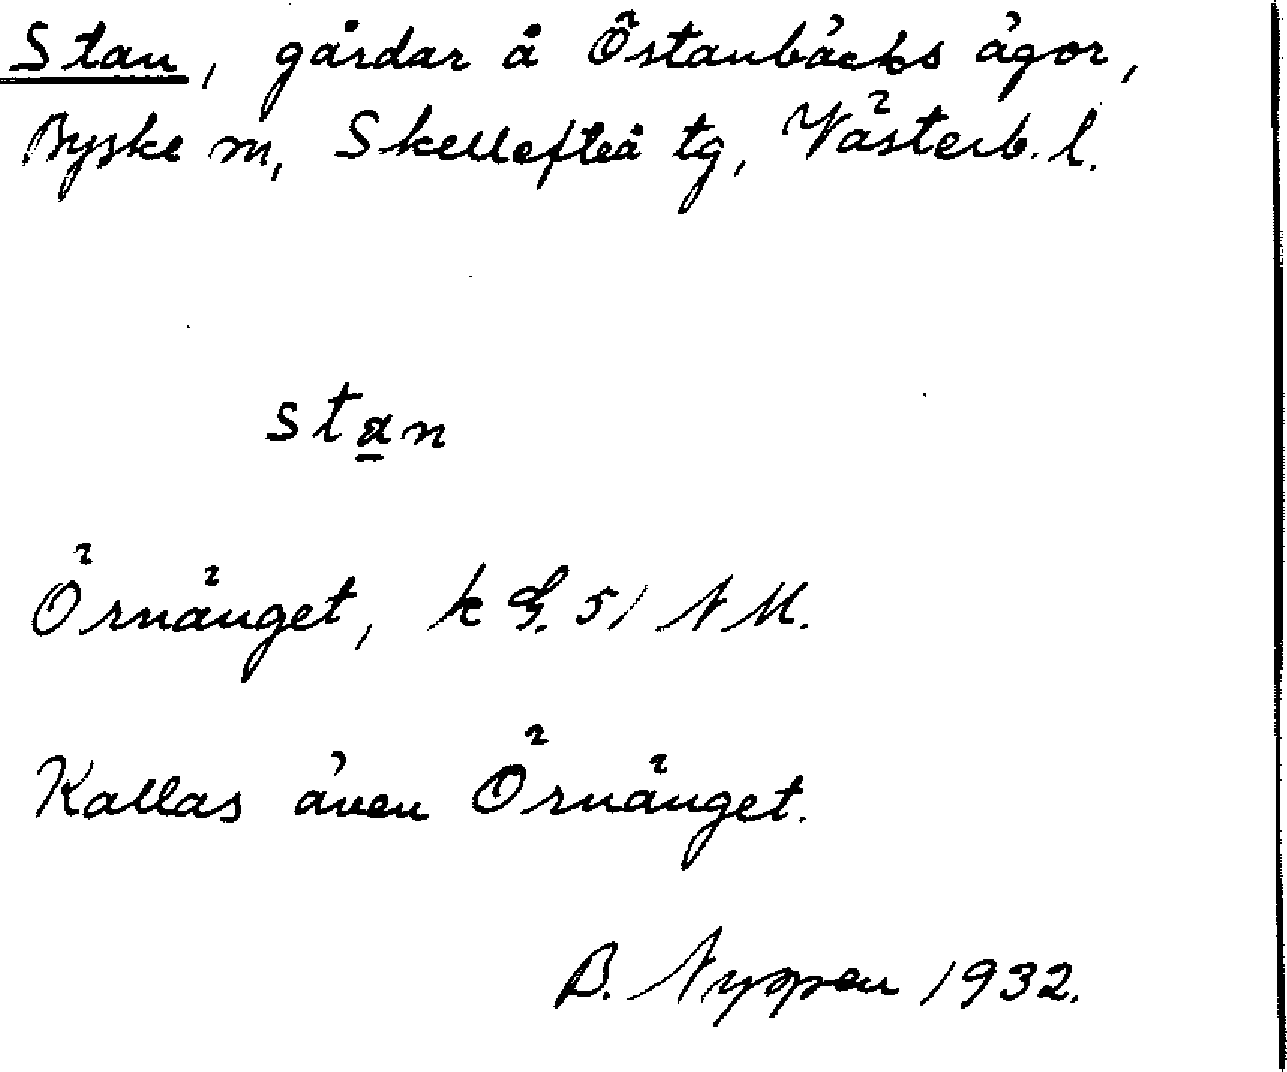 Stan, gårdar å Östanbäcks ägor,
Byske sn, Skellefteå tg, Västerb. l.
stan
Örnänget, k G. 51 NM.
Kallas även Örnänget.
B. Nyman 1932.